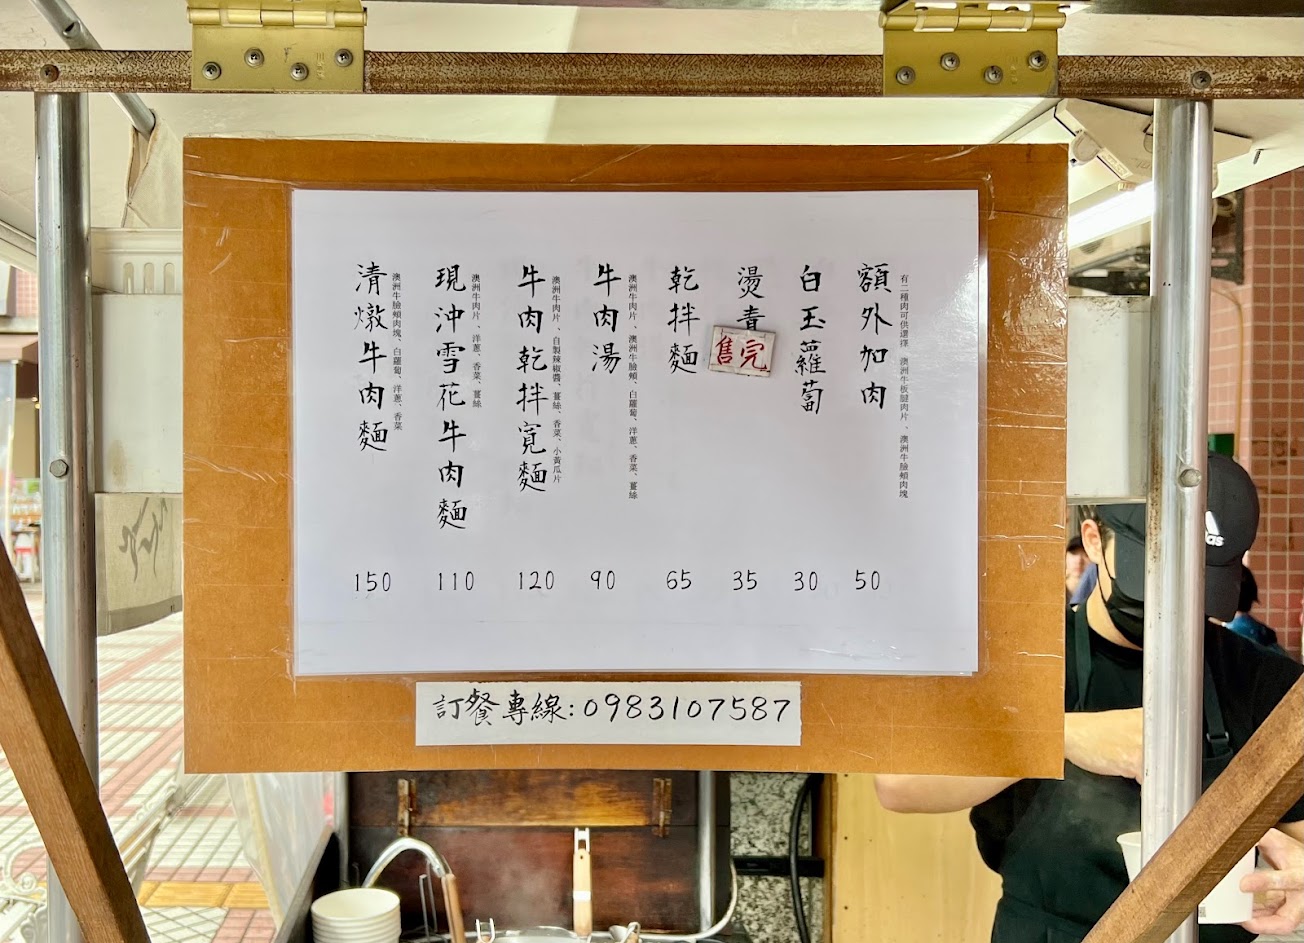 額外加肉
有二種肉可供選擇 澳洲牛板腱肉片、澳洲牛臉頰肉塊
50
白玉蘿蔔
30
燙青
售完
35
乾拌麵
65
牛肉湯
澳洲牛肉片、澳洲牛臉頰、白蘿蔔、洋蔥、香菜、薑絲
90
牛肉乾拌寬麵
澳洲牛肉片、自製辣椒醬、薑絲、香菜、小黃瓜片
120
現沖雪花牛肉麵
澳洲牛肉片、洋蔥、香菜、薑絲
110
清燉牛肉麵
澳洲牛臉頰肉塊、白蘿蔔、洋蔥、香菜
150
訂餐專線:0983107587